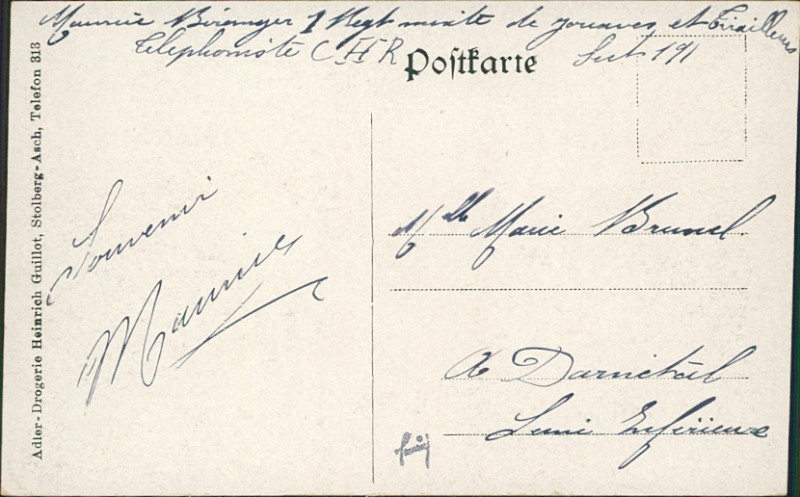 Maurice Béranger 1 Regt mixte de zouaves et Tirailleurs
Telephoniste C H R Sect 191
Postkarte
Adler-Drogerie Heinrich Guillot, Stolberg-Asch, Telefon 313
Souvenir
Maurice
Mlle Marie Brunel
A Darnetal
Seine Inferieure